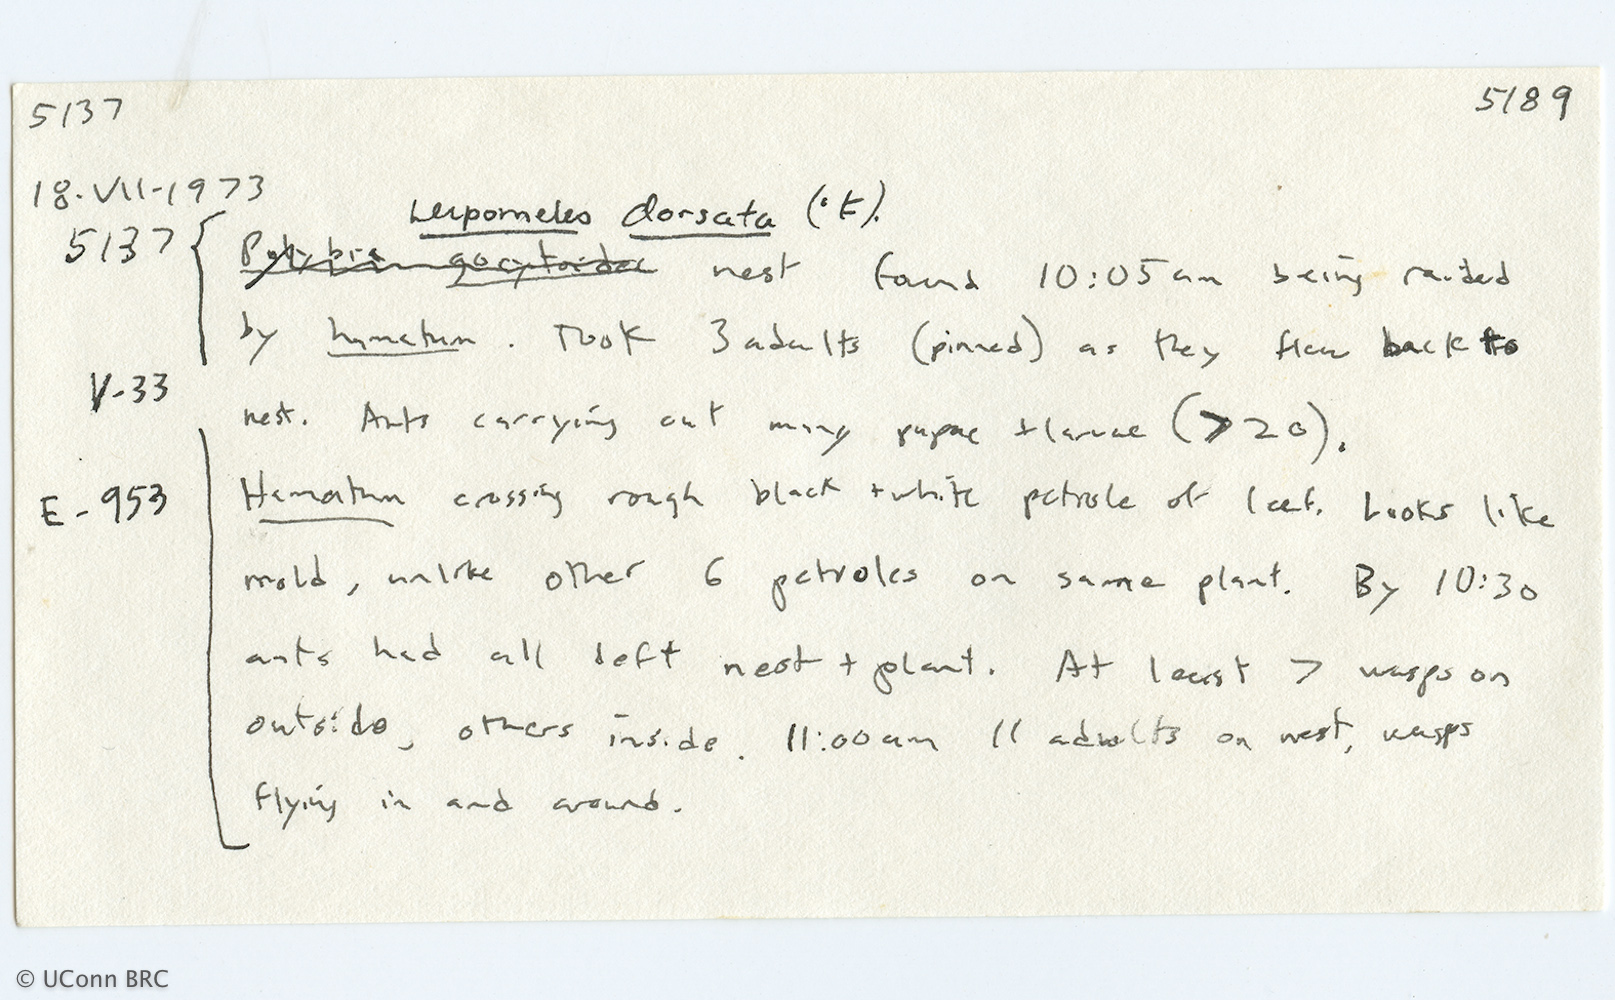 5137 5189
18.VII-1973
Leipomeles dorsata (F).
5137 { Polybia nest found 10:05am being raided
by hamatum. Took 3 adults (pinned) as they flew back to
V-33
nest. Ants carrying out many pupae + larvae (>20).
E-953 Hamatum crossing rough black + white petiole of leaf. Looks like
mold, unlike other 6 petioles on same plant. By 10:30
ants had all left nest + plant. At least 7 wasps on
outside, others inside. 11:00am 11 adults on nest, wasps
flying in and around.
© UConn BRC